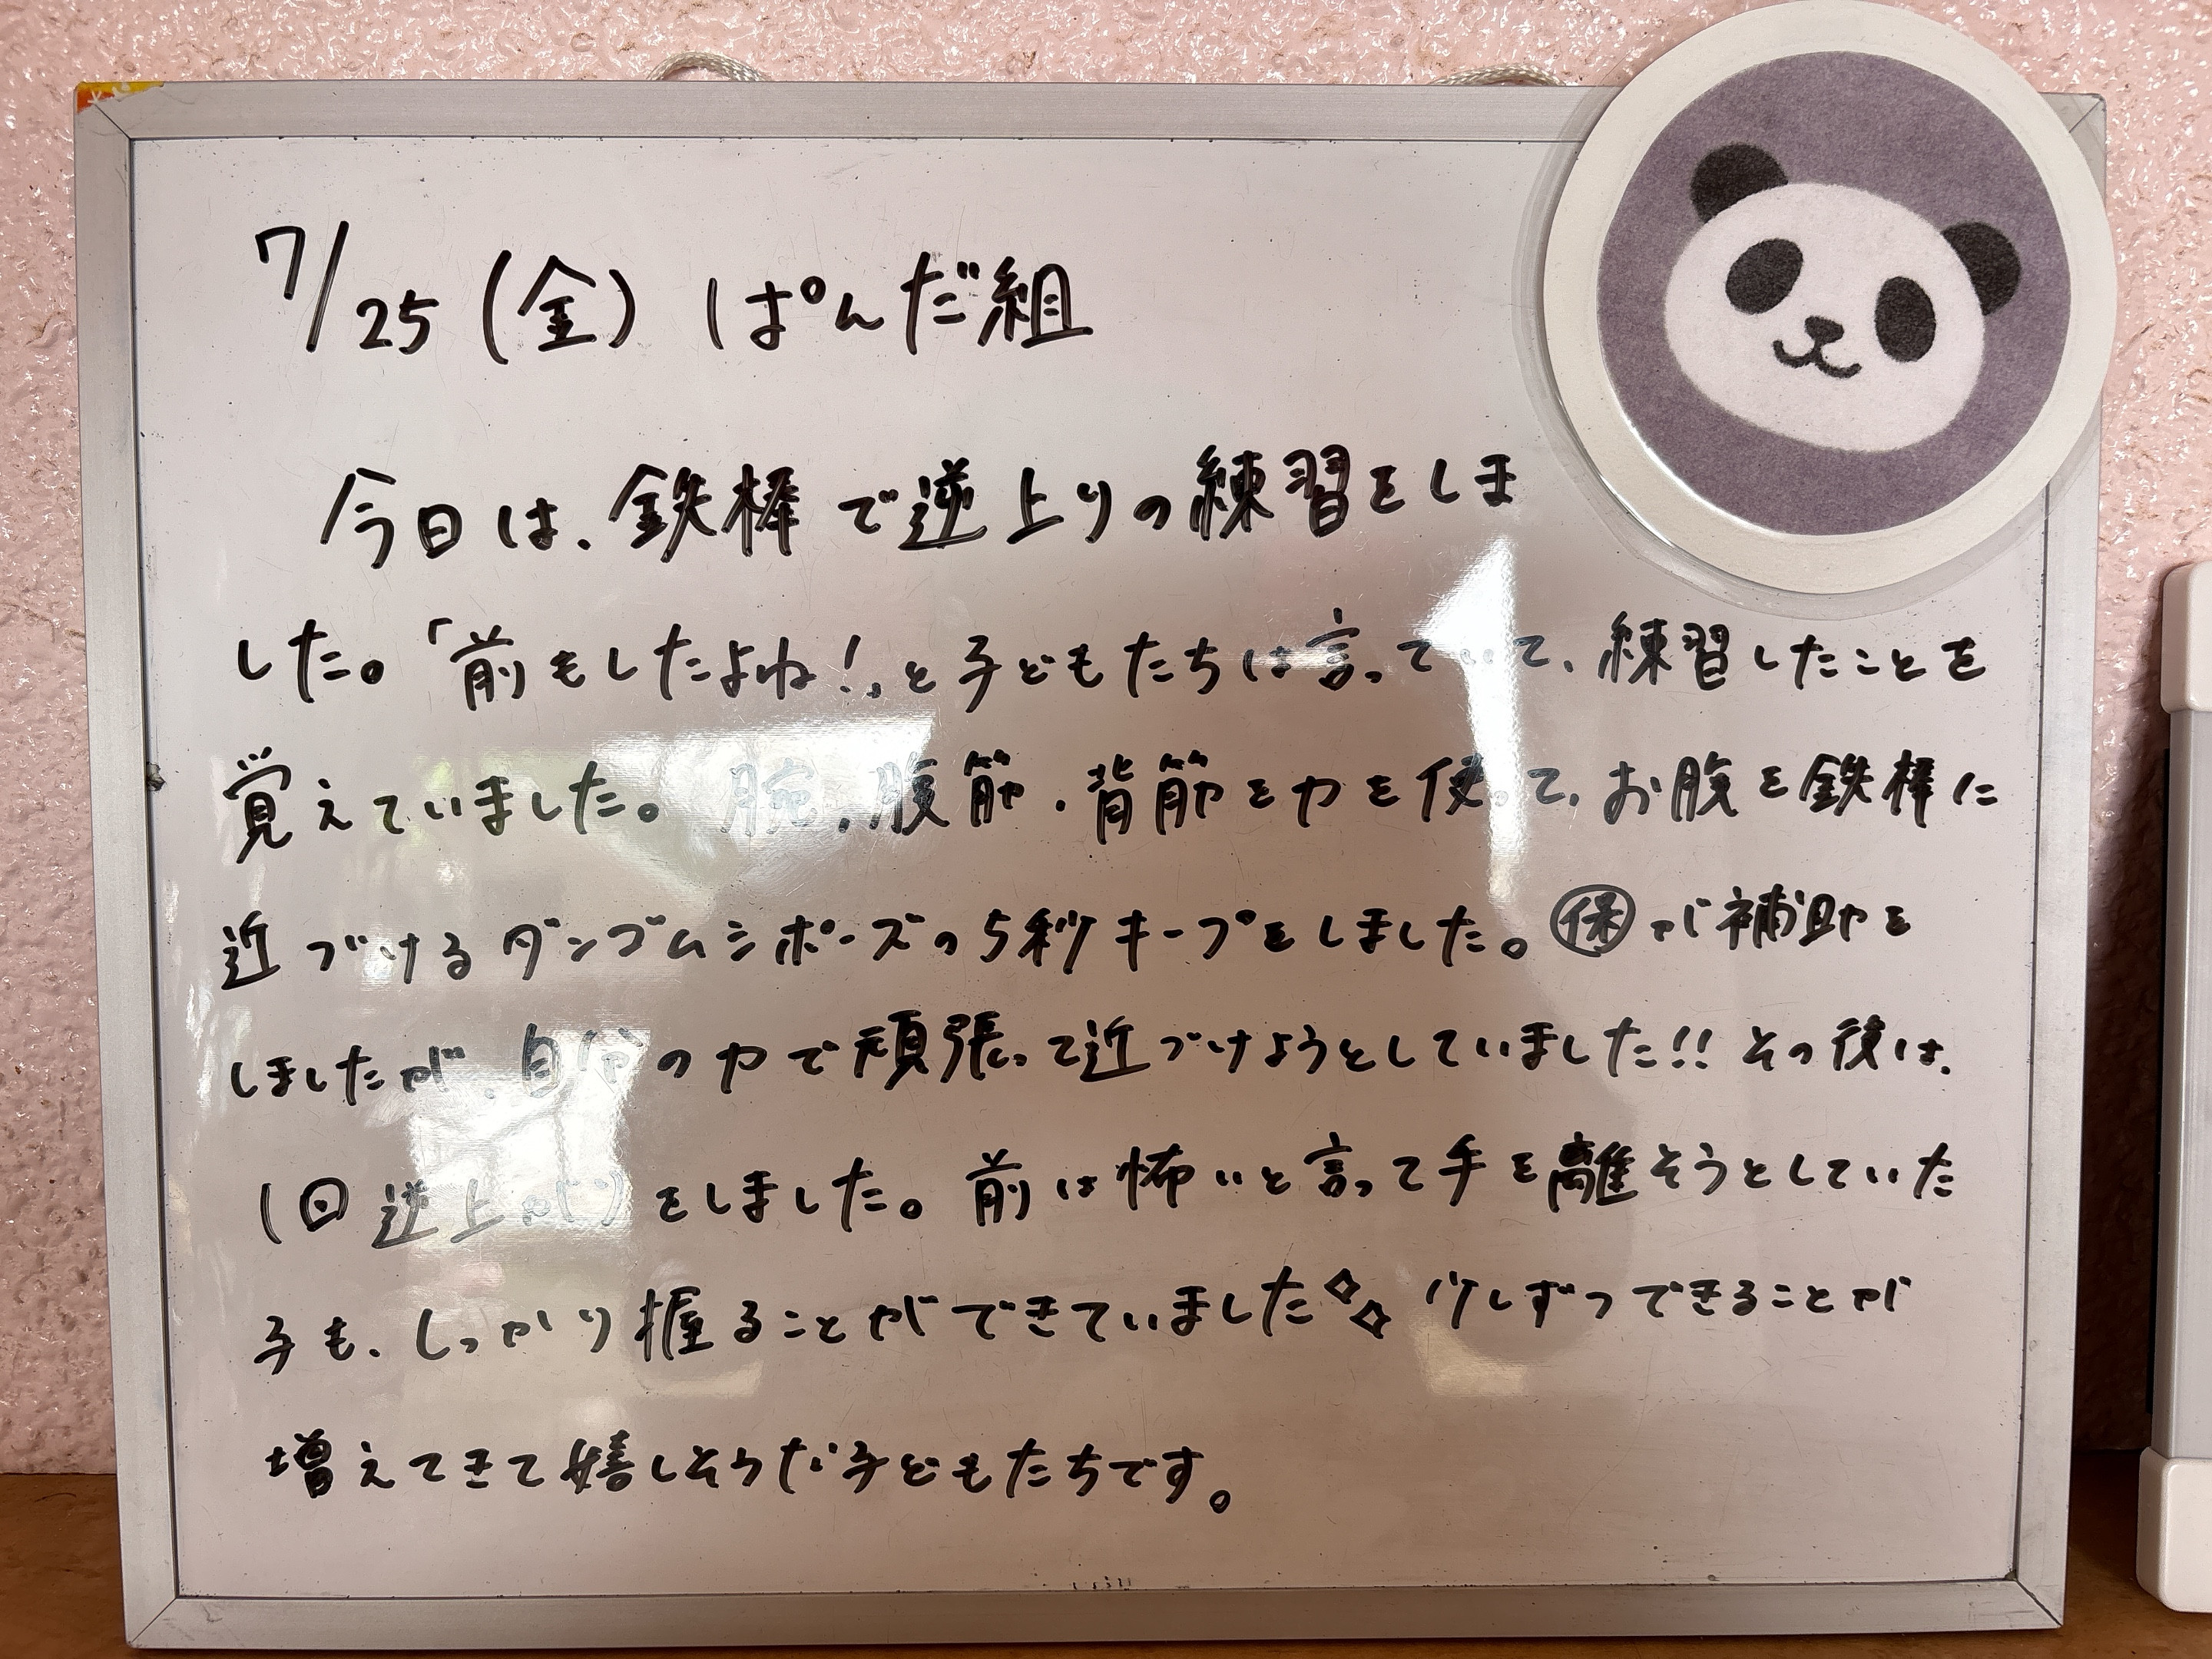 7/25(金) ぱんだ組
今日は、鉄棒で逆上りの練習をしま
した。「前もしたよね!」と子どもたちは言っていて、練習したことを
覚えていました。腕、腹筋、背筋を力を使って、お腹を鉄棒に
近づけるダンゴムシポーズの5秒キープをしました。㋭が補助を
しましたが、自分の力で頑張って近づけようとしていました!!その後は、
1回逆上がりをしました。前は怖いと言って手を離そうとしていた
子も、しっかり握ることができていました✧✧ 少しずつできることが
増えてきて嬉しそうな子どもたちです。